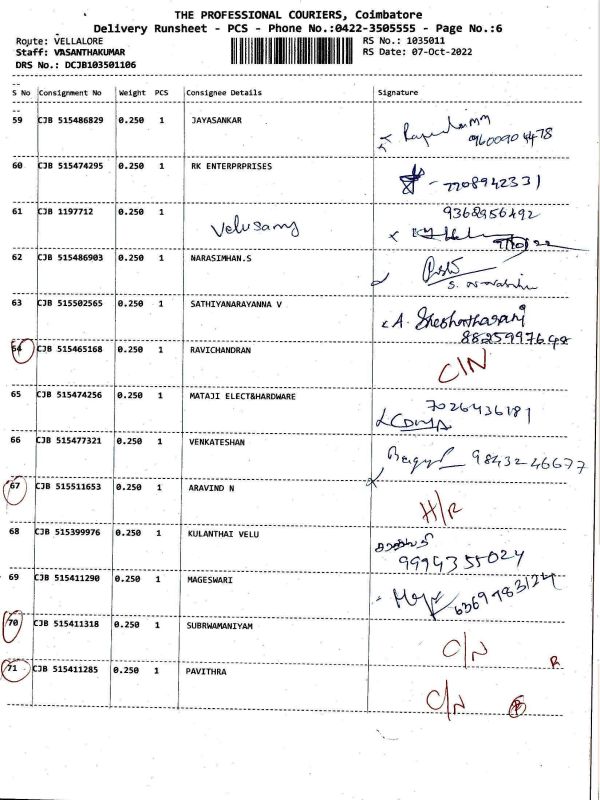 THE PROFESSIONAL COURIERS, Coimbatore
Delivery Runsheet - PCS - Phone No.:0422-3505555 - Page No.:6
Route: VELLALORE RS No.: 1035011
Staff: VASANTHAKUMAR RS Date: 07-Oct-2022
DRS No.: DCJB103501106
S No Consignment No Weight PCS Consignee Details Signature
59 CJB 515486829 0.250 1 JAYASANKAR
9600904478
60 CJB 515474295 0.250 1 RK ENTERPRPRISES
- 7708942331
61 CJB 1197712 0.250 1 9368956492
Velusamy
62 CJB 515486903 0.250 1 NARASIMHAN.S
63 CJB 515502565 0.250 1 SATHIYANARAYANNA V
A.
8825997648
64 CJB 515465168 0.250 1 RAVICHANDRAN
C/N
65 CJB 515474256 0.250 1 MATAJI ELECT&HARDWARE
7026436181
66 CJB 515477321 0.250 1 VENKATESHAN
9843246677
67 CJB 515511653 0.250 1 ARAVIND N
H/R
68 CJB 515399976 0.250 1 KULANTHAI VELU
9994355024
69 CJB 515411290 0.250 1 MAGESWARI
6369783124
70 CJB 515411318 0.250 1 SUBRWAMANIYAM
C/N R
71 CJB 515411285 0.250 1 PAVITHRA
C/N